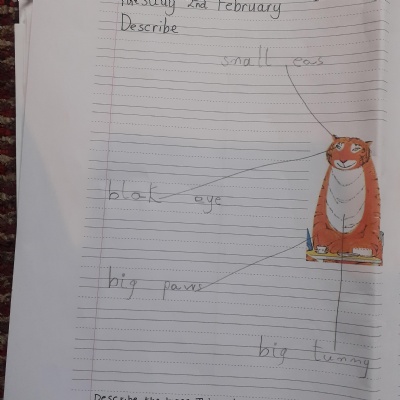 Tuesday 2nd February
Describe
small ears
blak aye
big paws
big tummy
Describe the